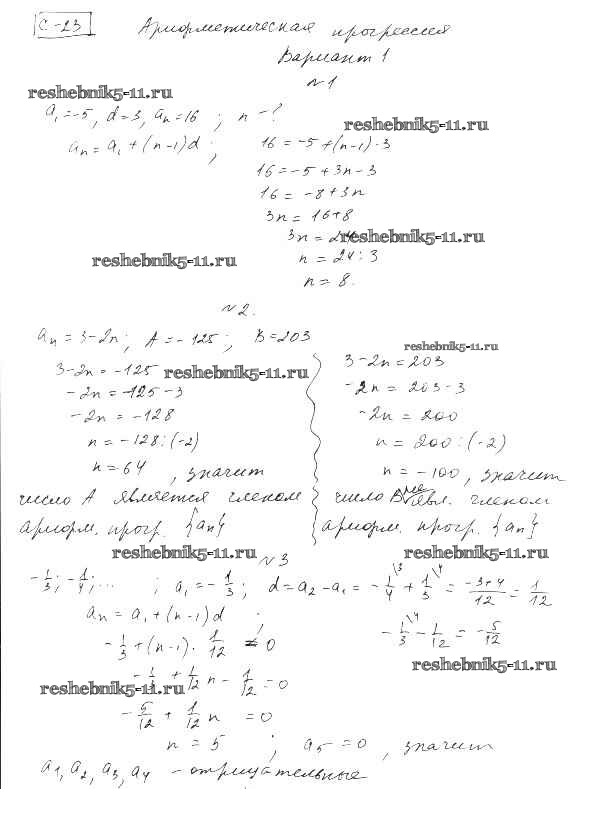 С-23 Арифметическая прогрессия
Вариант 1
№1
reshebnik5-11.ru
a₁=-5, d=3, aₙ=16 ; n-?
reshebnik5-11.ru
aₙ=a₁+(n-1)d ;
16=-5+(n-1)·3
16=-5+3n-3
16=-8+3n
3n=16+8
3n=24
reshebnik5-11.ru
n=24:3
reshebnik5-11.ru
n=8.
№2.
aₙ=3-2n; A=-125; B=203
3-2n=-125
reshebnik5-11.ru
-2n=-125-3
-2n=-128
n=-128:(-2)
n=64, значит
число A является членом
арифм. прогр. {aₙ}
reshebnik5-11.ru
3-2n=203
-2n=203-3
-2n=200
n=200:(-2)
n=-100, значит
число B не явл. членом
арифм. прогр. {aₙ}
reshebnik5-11.ru
№3
reshebnik5-11.ru
-1/3; -1/4; ... ; a₁=-1/3; d=a₂-a₁=-1/4+1/3=(-3+4)/12=1/12
aₙ=a₁+(n-1)d ;
-1/3+(n-1)·1/12=0
-1/3-1/12=-5/12
reshebnik5-11.ru
-1/3+1/12n-1/12=0
reshebnik5-11.ru
-5/12+1/12n=0
n=5 ; a₅=0, значит
a₁, a₂, a₃, a₄ - отрицательные